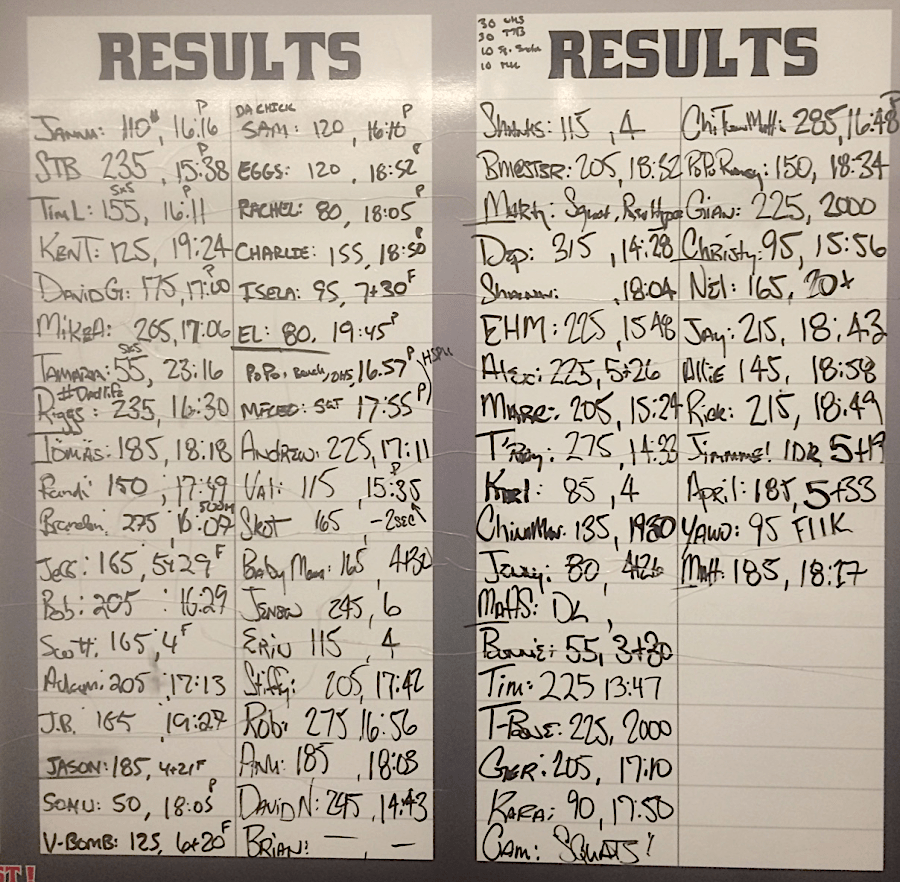 RESULTS
JANNA: 110#, 16:16 P
STB 235, 15:38 P
5x5
Tim L: 155, 16:11 P
KENT: 125, 19:24
DAVID G: 175, 17:00 P
MIKE A: 205, 17:06
5x5
TAMARA: 55, 23:16
#Dadlife
Riggs: 235, 16:30
TOMÁS: 185, 18:18
Randi 150, 17:49
500m
Brandon: 275 16:07
Jess: 165, 5+29 F
Rob: 205 16:29
Scott: 165, 4 F
Adam: 205 17:13
J.B. 165 19:27
JASON: 185, 4+21 F
SOMU: 50, 18:05 P
V-BOMB: 125, 6+20 F
DA CHICK
SAM: 120, 16:10 P
EGGS: 120, 18:52 P
RACHEL: 80, 18:05 P
CHARLIE: 155, 18:50
ISELA: 95, 7+30 F
EL: 80, 19:45 P
POPO, Bench, OHS, 16:57 P HSPU
MFCEO: SQT 17:55 P
ANDREW: 225, 17:11
VAL: 115 15:35 P
Skot 165 -2sec
Baby Mama: 165 4+30
JENBEN 245, 6
ERIN 115, 4
Stiffy: 205, 17:42
ROB: 275, 16:56
ANU: 185, 18:03
DAVID N: 245, 14:43
BRIAN: — , —
30 OHS
30 TTB
10
10
RESULTS
Shanks: 115, 4
BMEISTER: 205, 18:52
Marty: Squat, Rev Hyper
Dep: 315, 14:28
Shannon: , 18:04
EHM: 225, 15:48
Alex: 225, 5+26
MARC: 205, 15:24
T'Ray: 275, 14:33
Karl: 85, 4
ChinaMan: 135, 1930
Jenny: 80, 4+26
MATTS: DL,
Bonnie: 55, 3+30
Tim: 225 13:47
T-Bone: 225, 2000
GER: 205, 17:10
KARA: 90, 17:50
CAM: SQUATS!
ChiTownMatt: 285, 16:48 P
PoPo Raney: 150, 18:34
GIAN: 225, 2000
Christy: 95, 15:56
NEL: 165, 20+
JAY: 215, 18:43
Allie 145, 18:58
Rick: 215, 18:49
Jimmme! IDK 5+19
April: 185, 5+33
YAWO: 95 FIIK
Matt: 185, 18:17
ST!